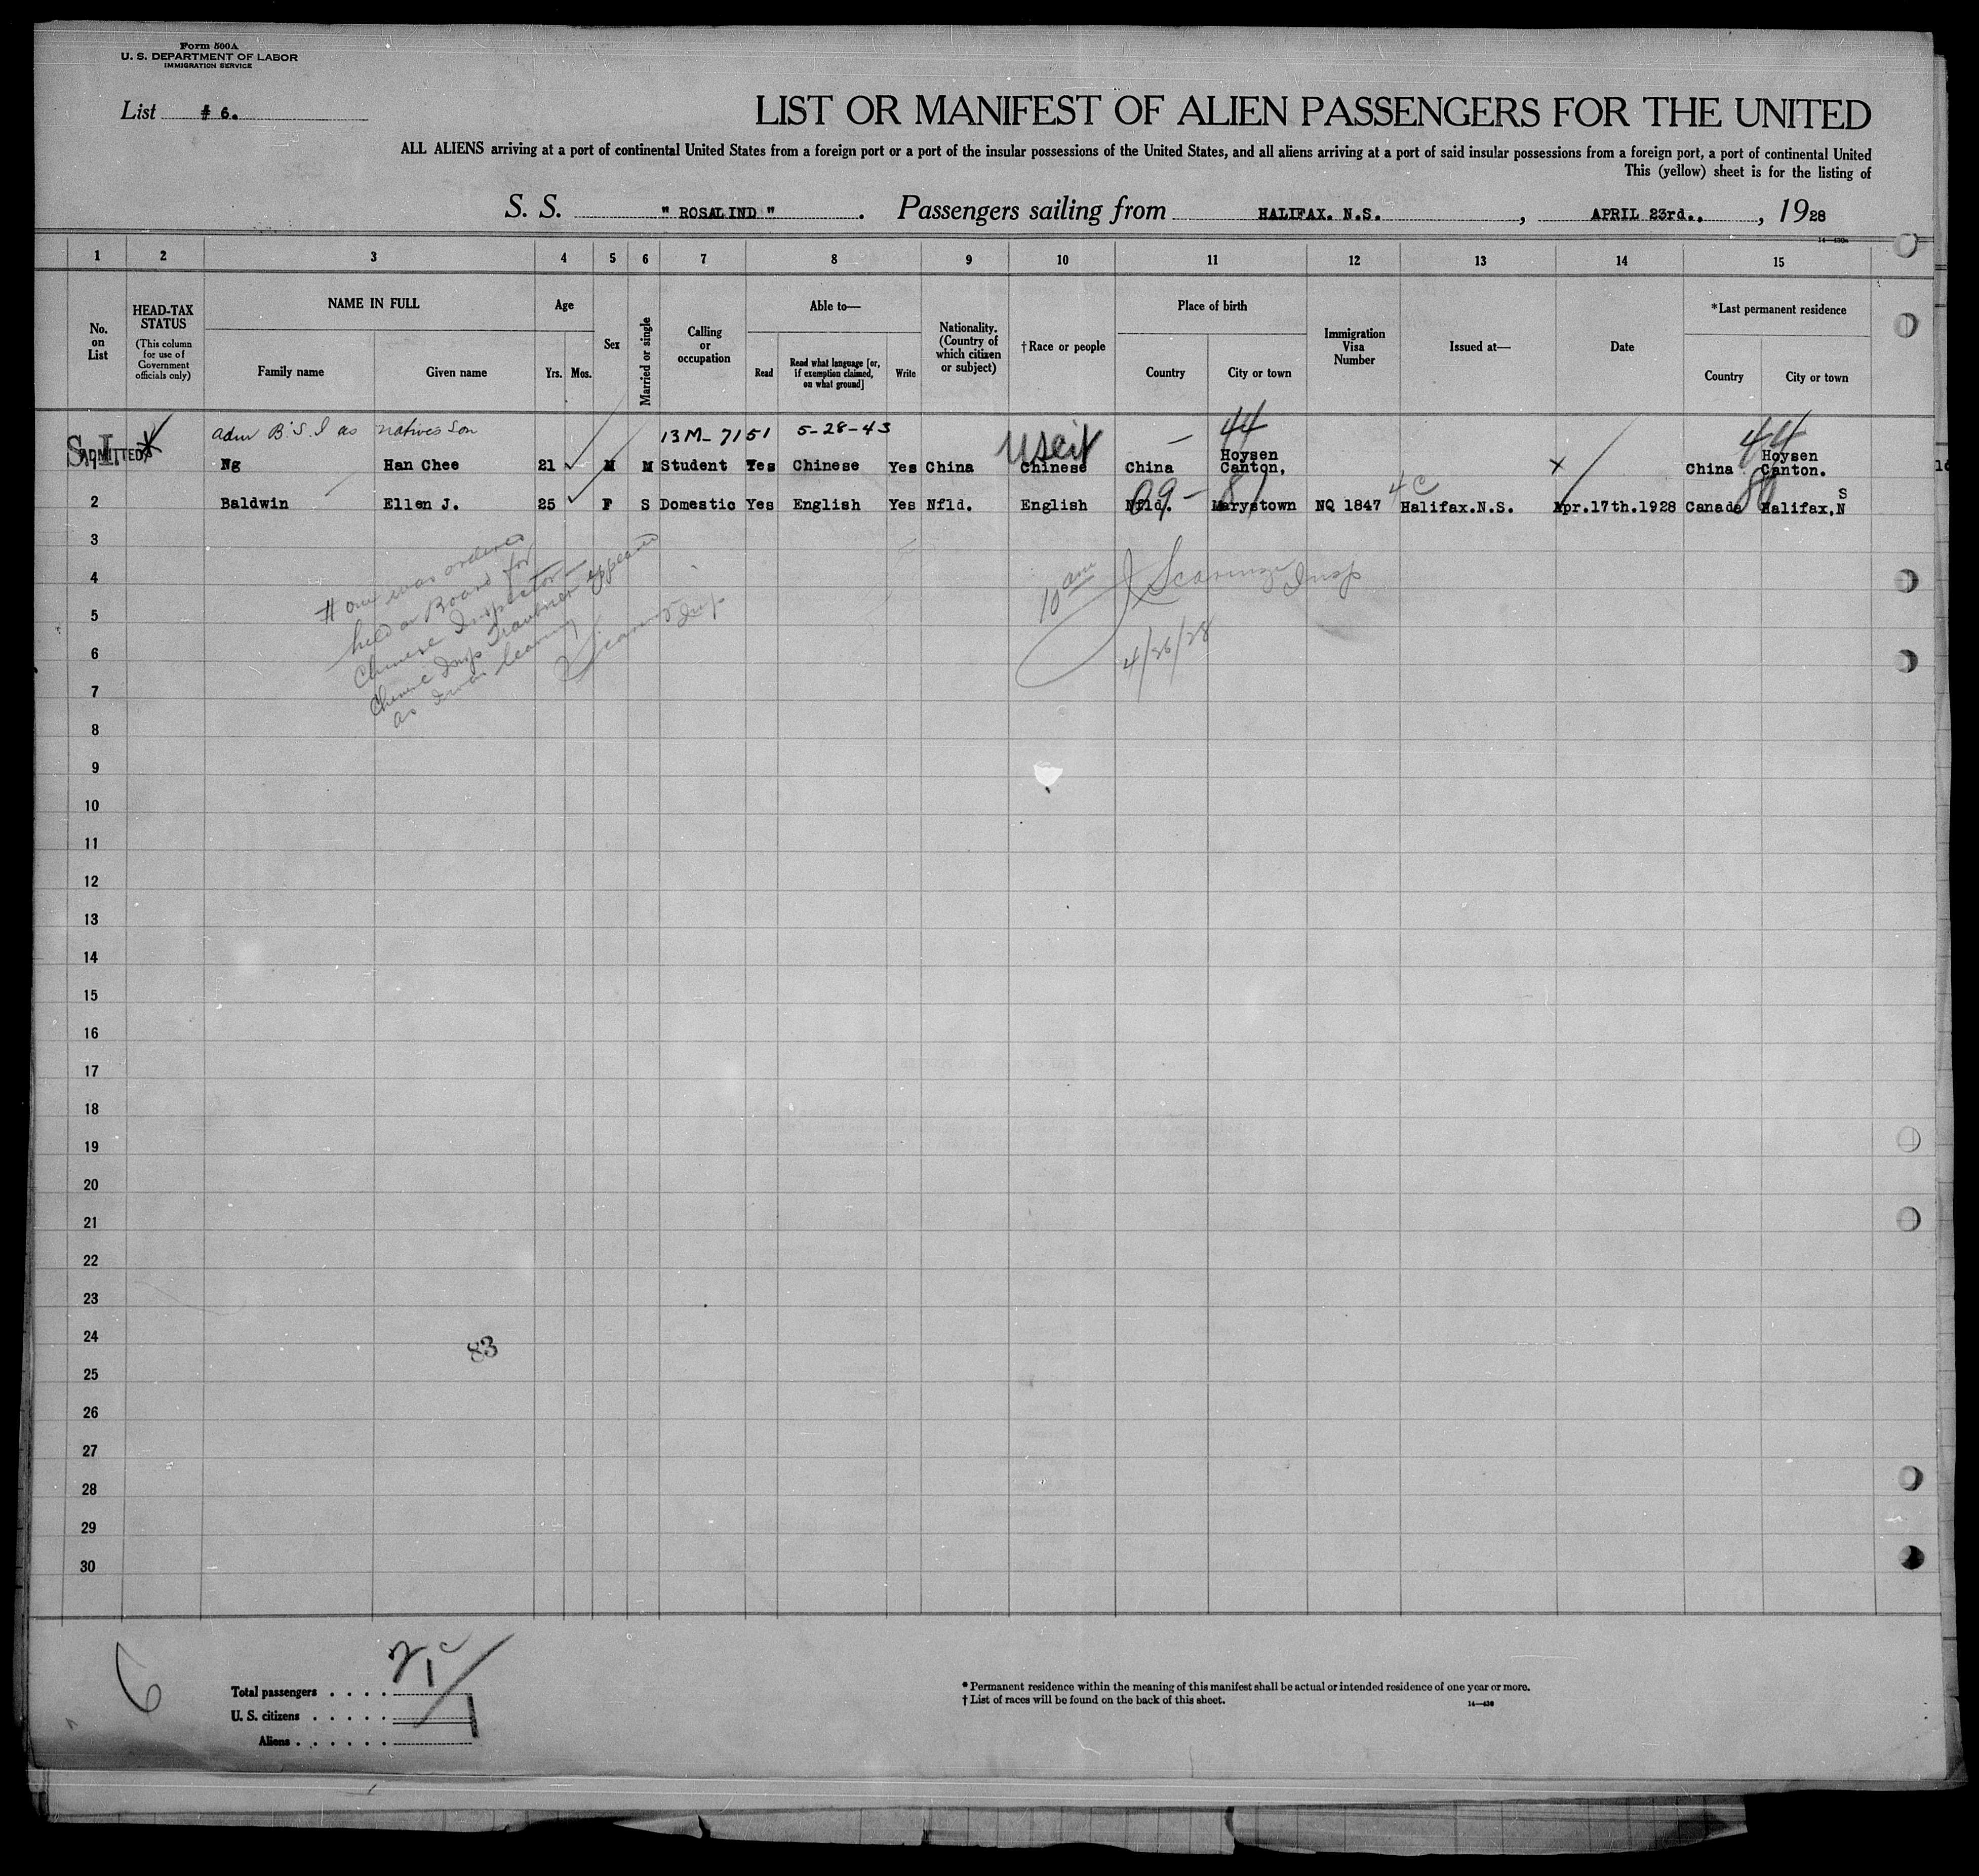 Form 500A
U. S. DEPARTMENT OF LABOR
IMMIGRATION SERVICE
List # 6.
LIST OR MANIFEST OF ALIEN PASSENGERS FOR THE UNITED
ALL ALIENS arriving at a port of continental United States from a foreign port or a port of the insular possessions of the United States, and all aliens arriving at a port of said insular possessions from a foreign port, a port of continental United
This (yellow) sheet is for the listing of
S. S. " ROSALIND " . Passengers sailing from HALIFAX. N.S. , APRIL 23rd., , 1928
1 2 3 4 5 6 7 8 9 10 11 12 13 14 15
No. on List
HEAD-TAX STATUS
(This column for use of Government officials only)
NAME IN FULL
Family name Given name
Age
Yrs. Mos.
Sex
Married or single
Calling or occupation
Able to—
Read
Read what language [or, if exemption claimed, on what ground]
Write
Nationality. (Country of which citizen or subject)
†Race or people
Place of birth
Country City or town
Immigration Visa Number
Issued at—
Date
*Last permanent residence
Country City or town
adm B.S.I as natives son 13M-7151 5-28-43 USCit — 44 44
S.I. ADMITTED Ng Han Chee 21 M M Student Yes Chinese Yes China Chinese China Hoysen Canton, x China Hoysen Canton.
2 Baldwin Ellen J. 25 F S Domestic Yes English Yes Nfld. English Nfld. Marystown NQ 1847 Halifax.N.S. Apr.17th.1928 Canada Halifax,N S
09 - 81 4C
3
4
5
6
7
8
9
10
11
12
13
14
15
16
17
18
19
20
21
22
23
24
25
26
27
28
29
30
# one was ordered
held on Board for
Chinese Inspector
Chinese Insp appeared
as I was leaving
Insp
10 am
Insp
4/26/28
83
6
Total passengers . . . . 2
U. S. citizens . . . . .
Aliens . . . . . .
* Permanent residence within the meaning of this manifest shall be actual or intended residence of one year or more.
† List of races will be found on the back of this sheet.
14—430